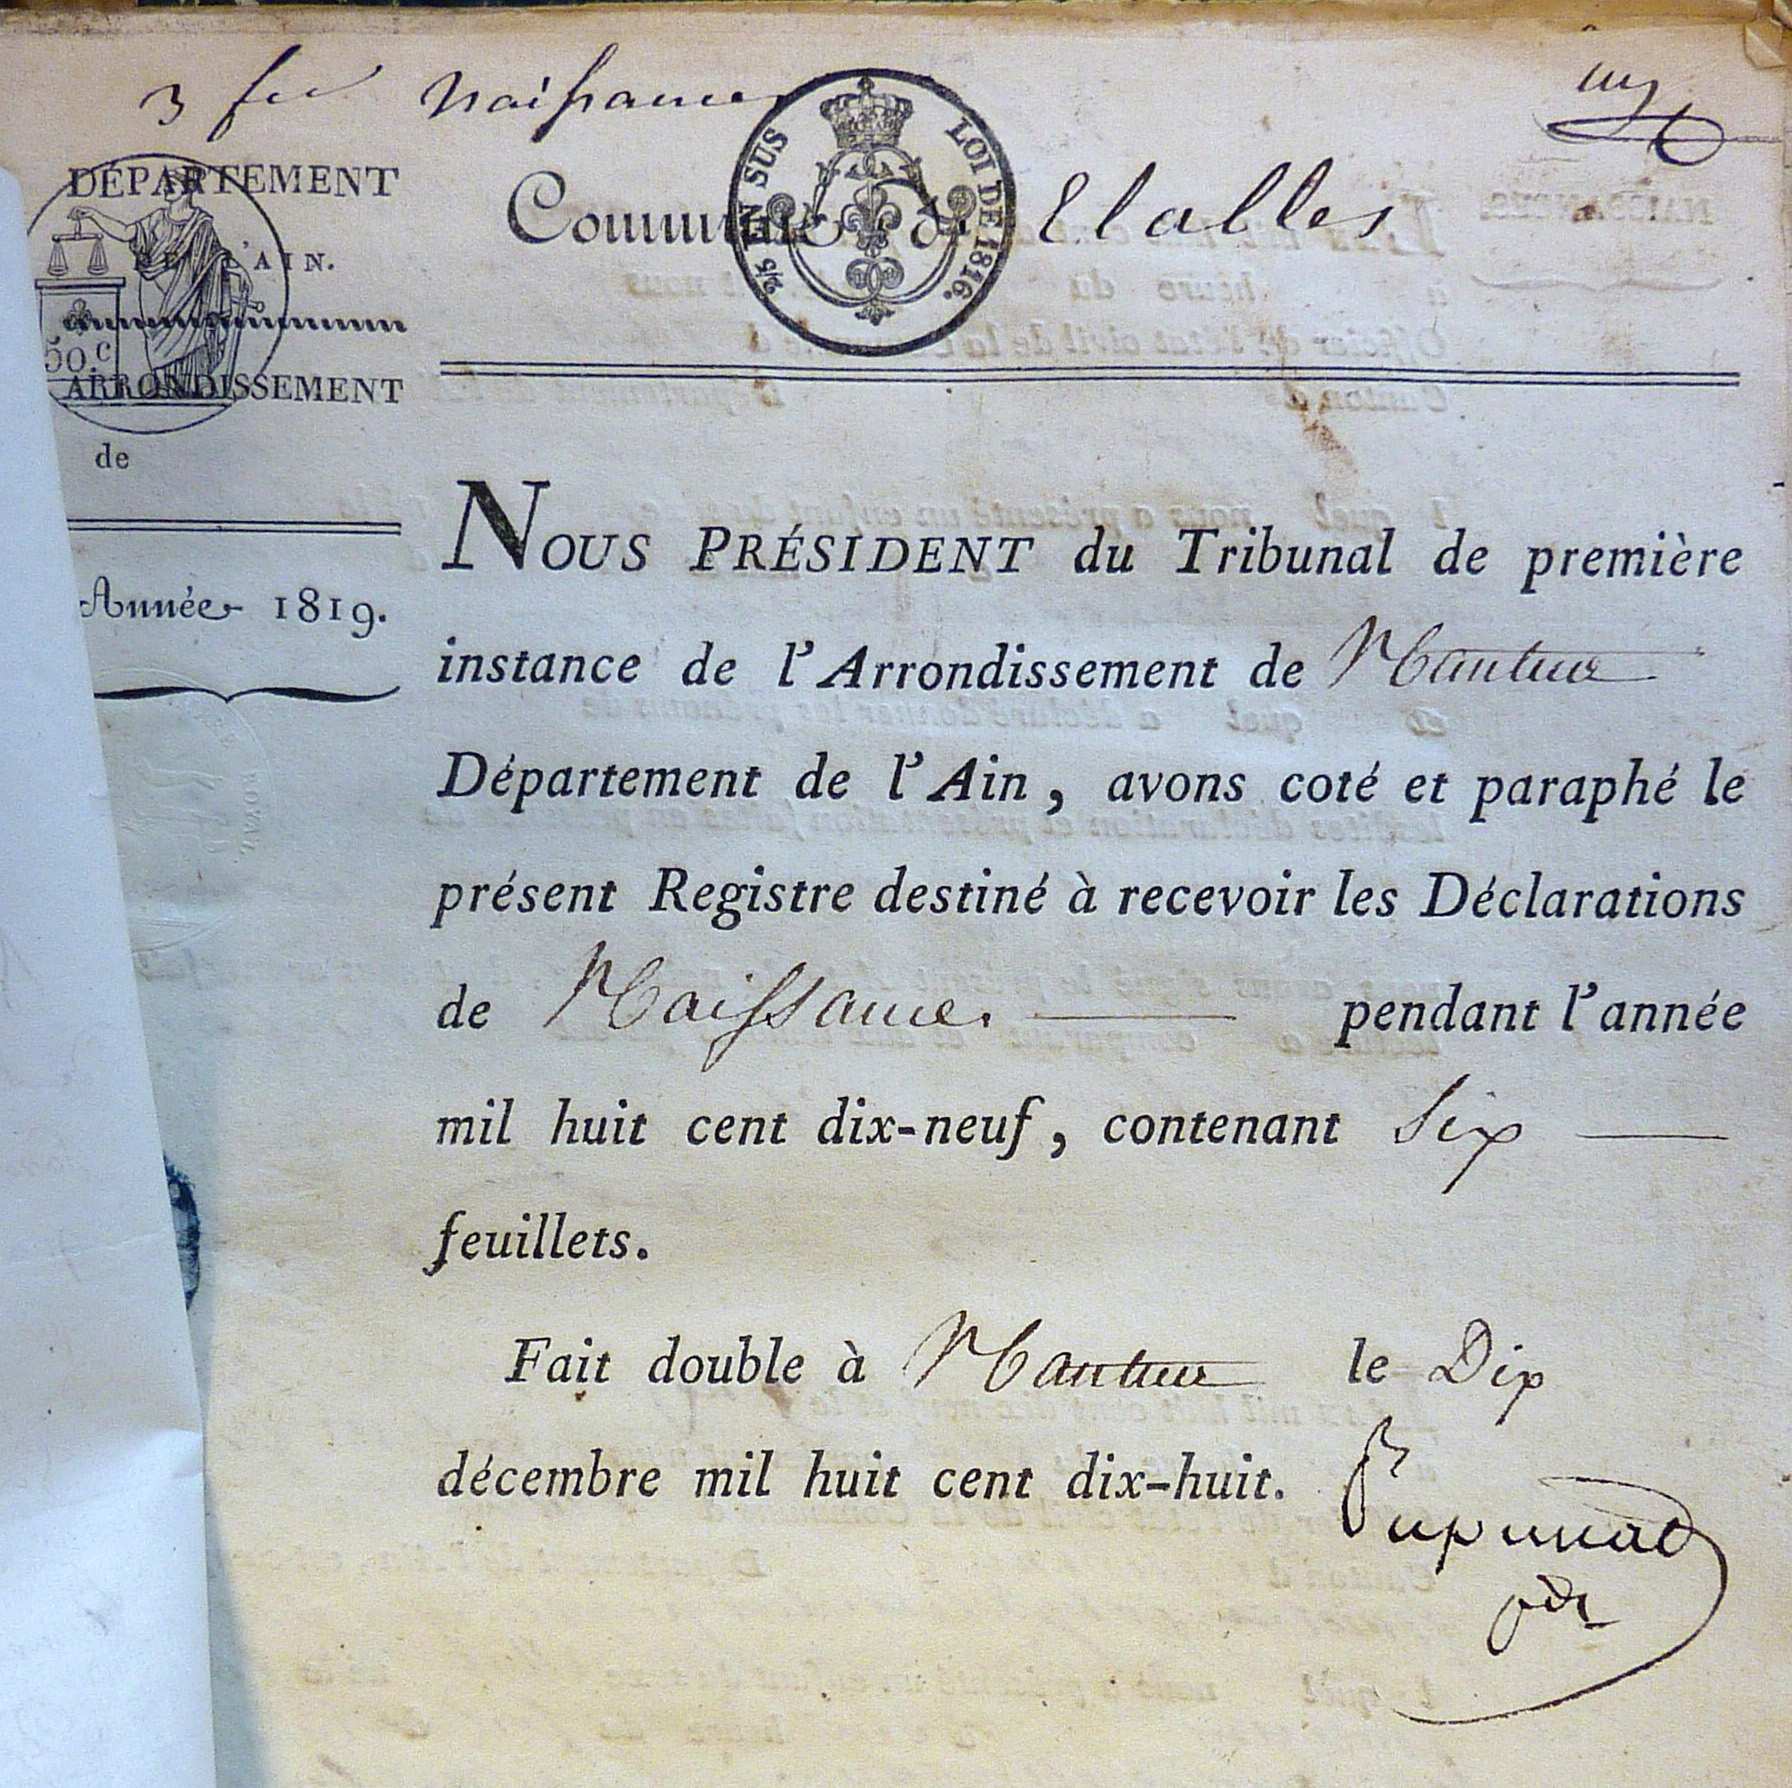 3 Naissances
DÉPARTEMENT
DE L'AIN.
50.c
ARRONDISSEMENT
de
Année 1819.
2/5 EN SUS LOI DE 1816.
Commune d' Etables
NOUS PRÉSIDENT du Tribunal de première
instance de l'Arrondissement de Nantua
Département de l'Ain, avons coté et paraphé le
présent Registre destiné à recevoir les Déclarations
de Naissances pendant l'année
mil huit cent dix-neuf, contenant Six
feuillets.
Fait double à Nantua le Dix
décembre mil huit cent dix-huit.